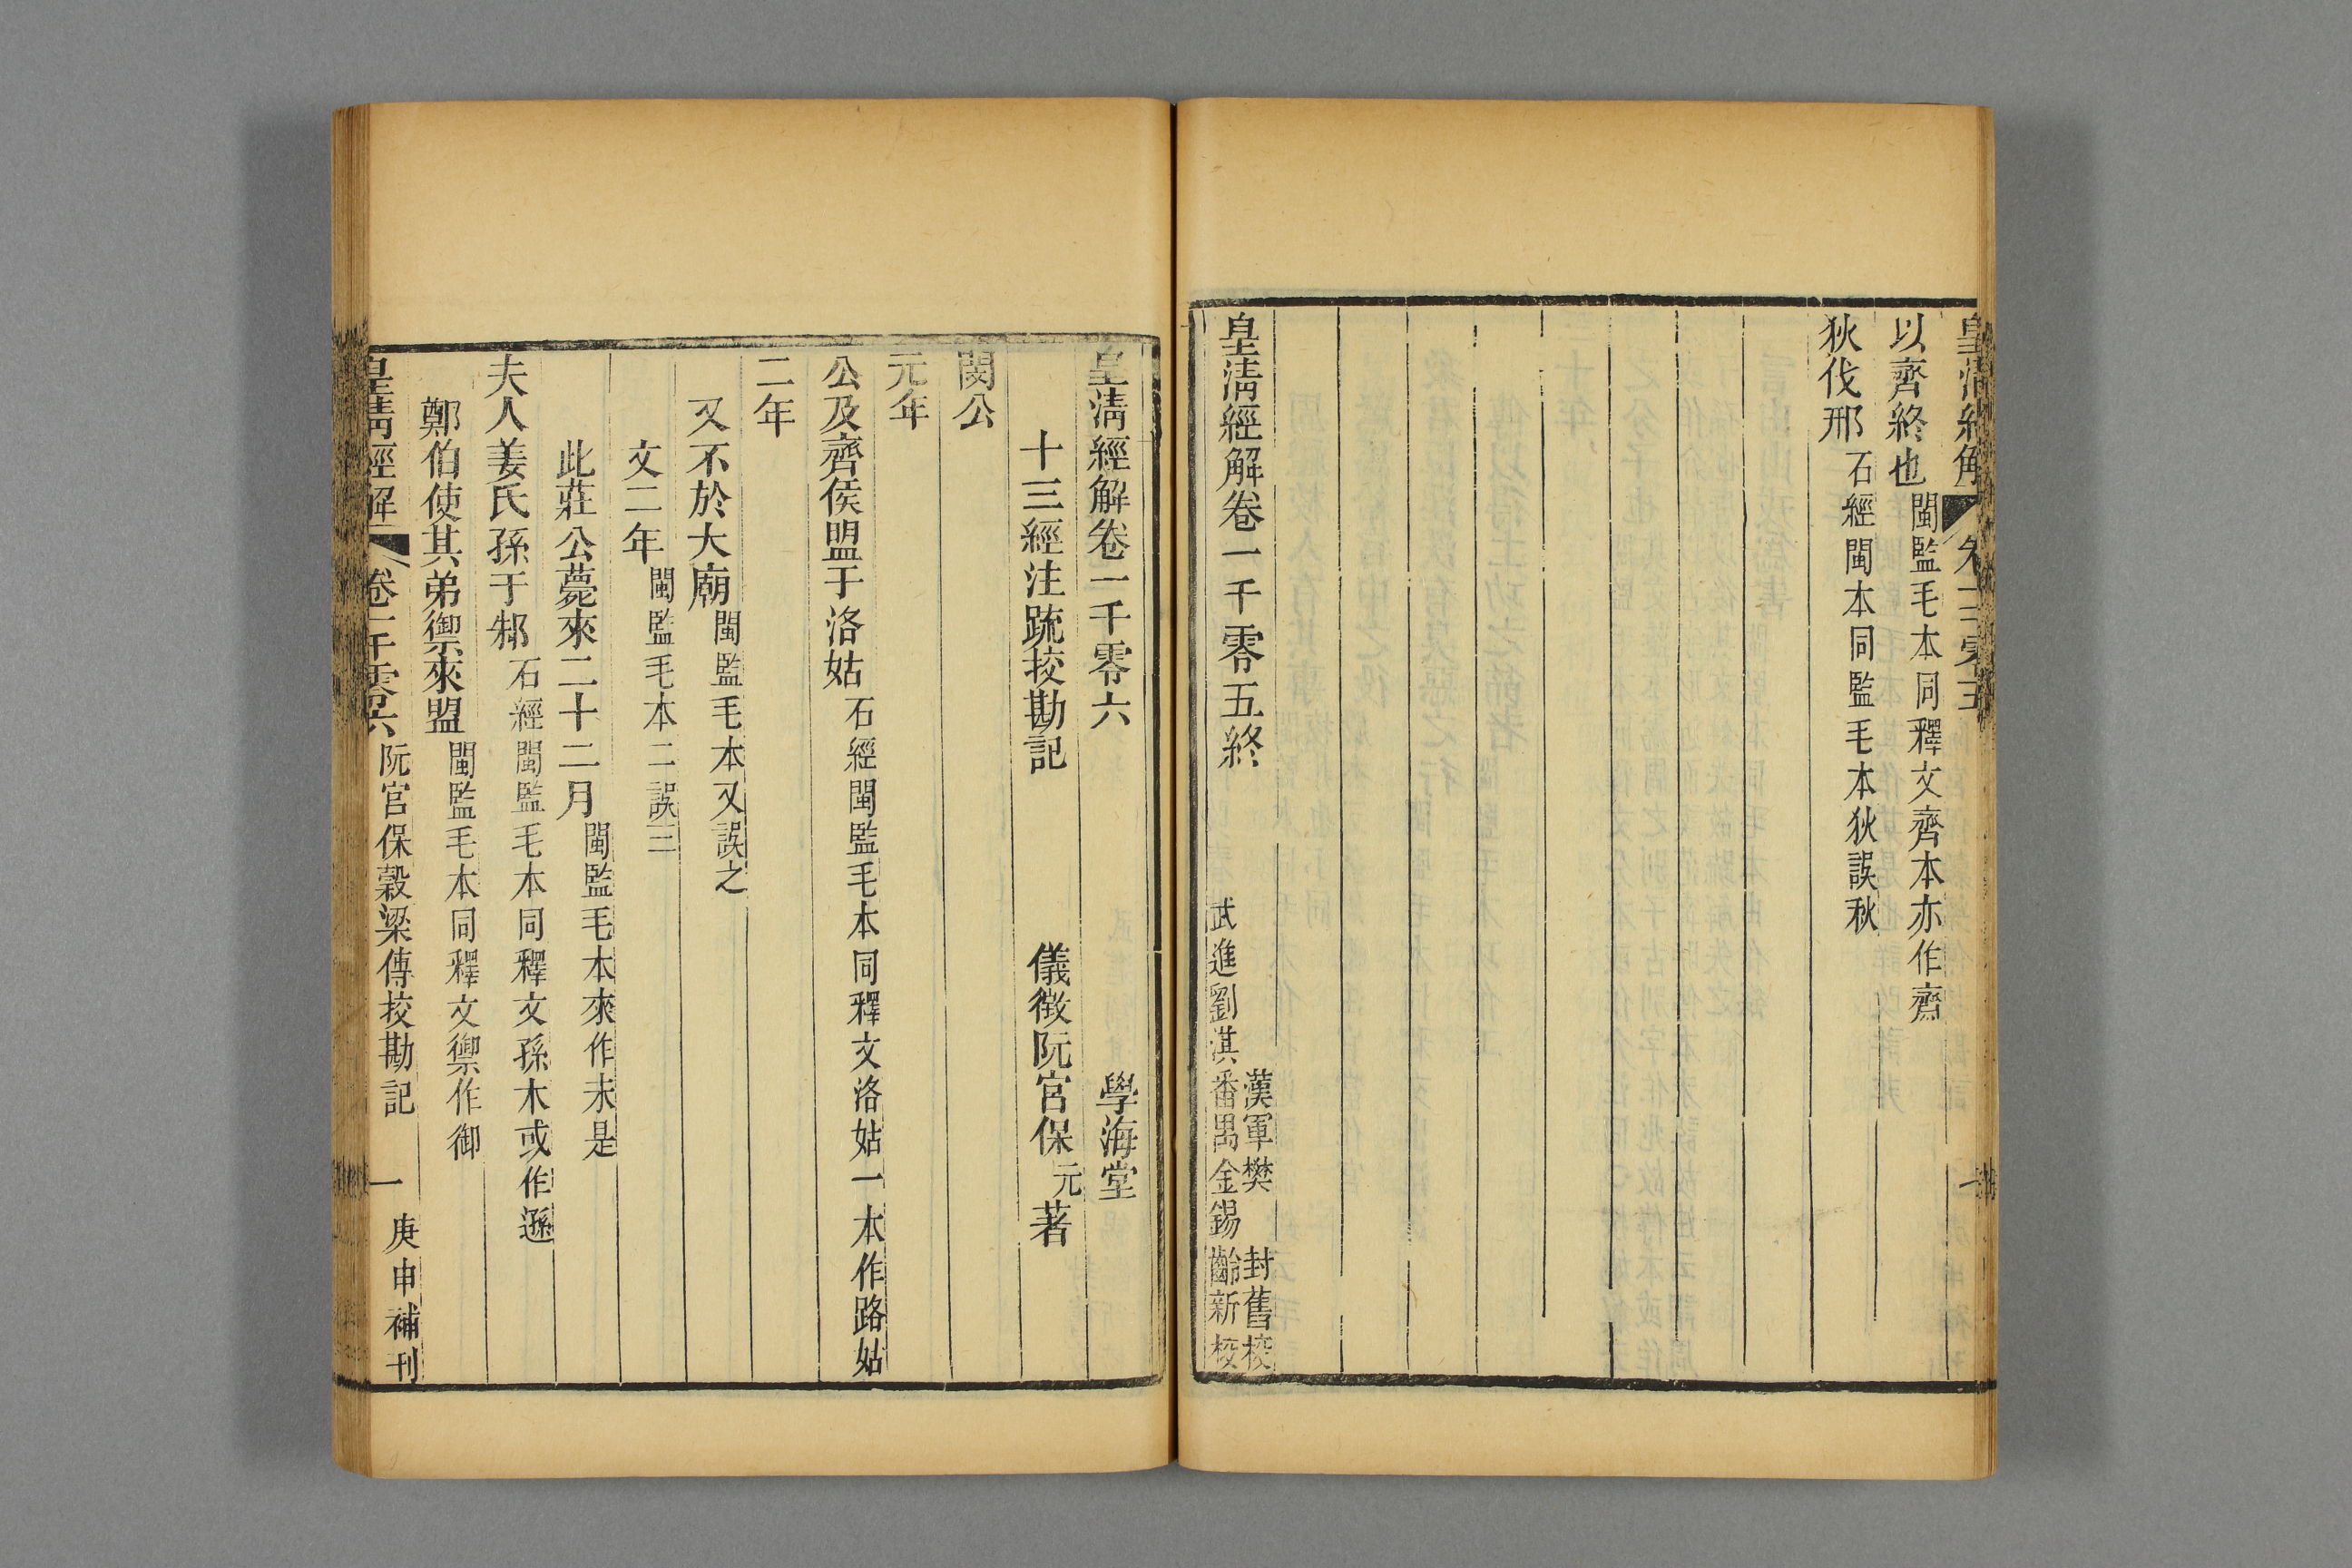 皇清經解 卷一千零五
以齊終也閩監毛本同釋文齊本亦作齋
狄伐邢石經閩本同監毛本狄誤秋
皇清經解卷一千零五終
漢軍樊封舊校
武進劉淇番禺金錫齡新校
皇清經解卷一千零六
學海堂
十三經注疏挍勘記
儀徵阮宮保元著
閔公
元年
公及齊侯盟于洛姑石經閩監毛本同釋文洛姑一本作路姑
二年
又不於大廟閩監毛本又誤之
文二年閩監毛本二誤三
此莊公薨來二十二月閩監毛本來作未是
夫人姜氏孫于邾石經閩監毛本同釋文孫木或作遜
鄭伯使其弟禦來盟閩監毛本同釋文禦作御
皇清經解 卷一千零六 阮宮保穀梁傳挍勘記 一 庚申補刊